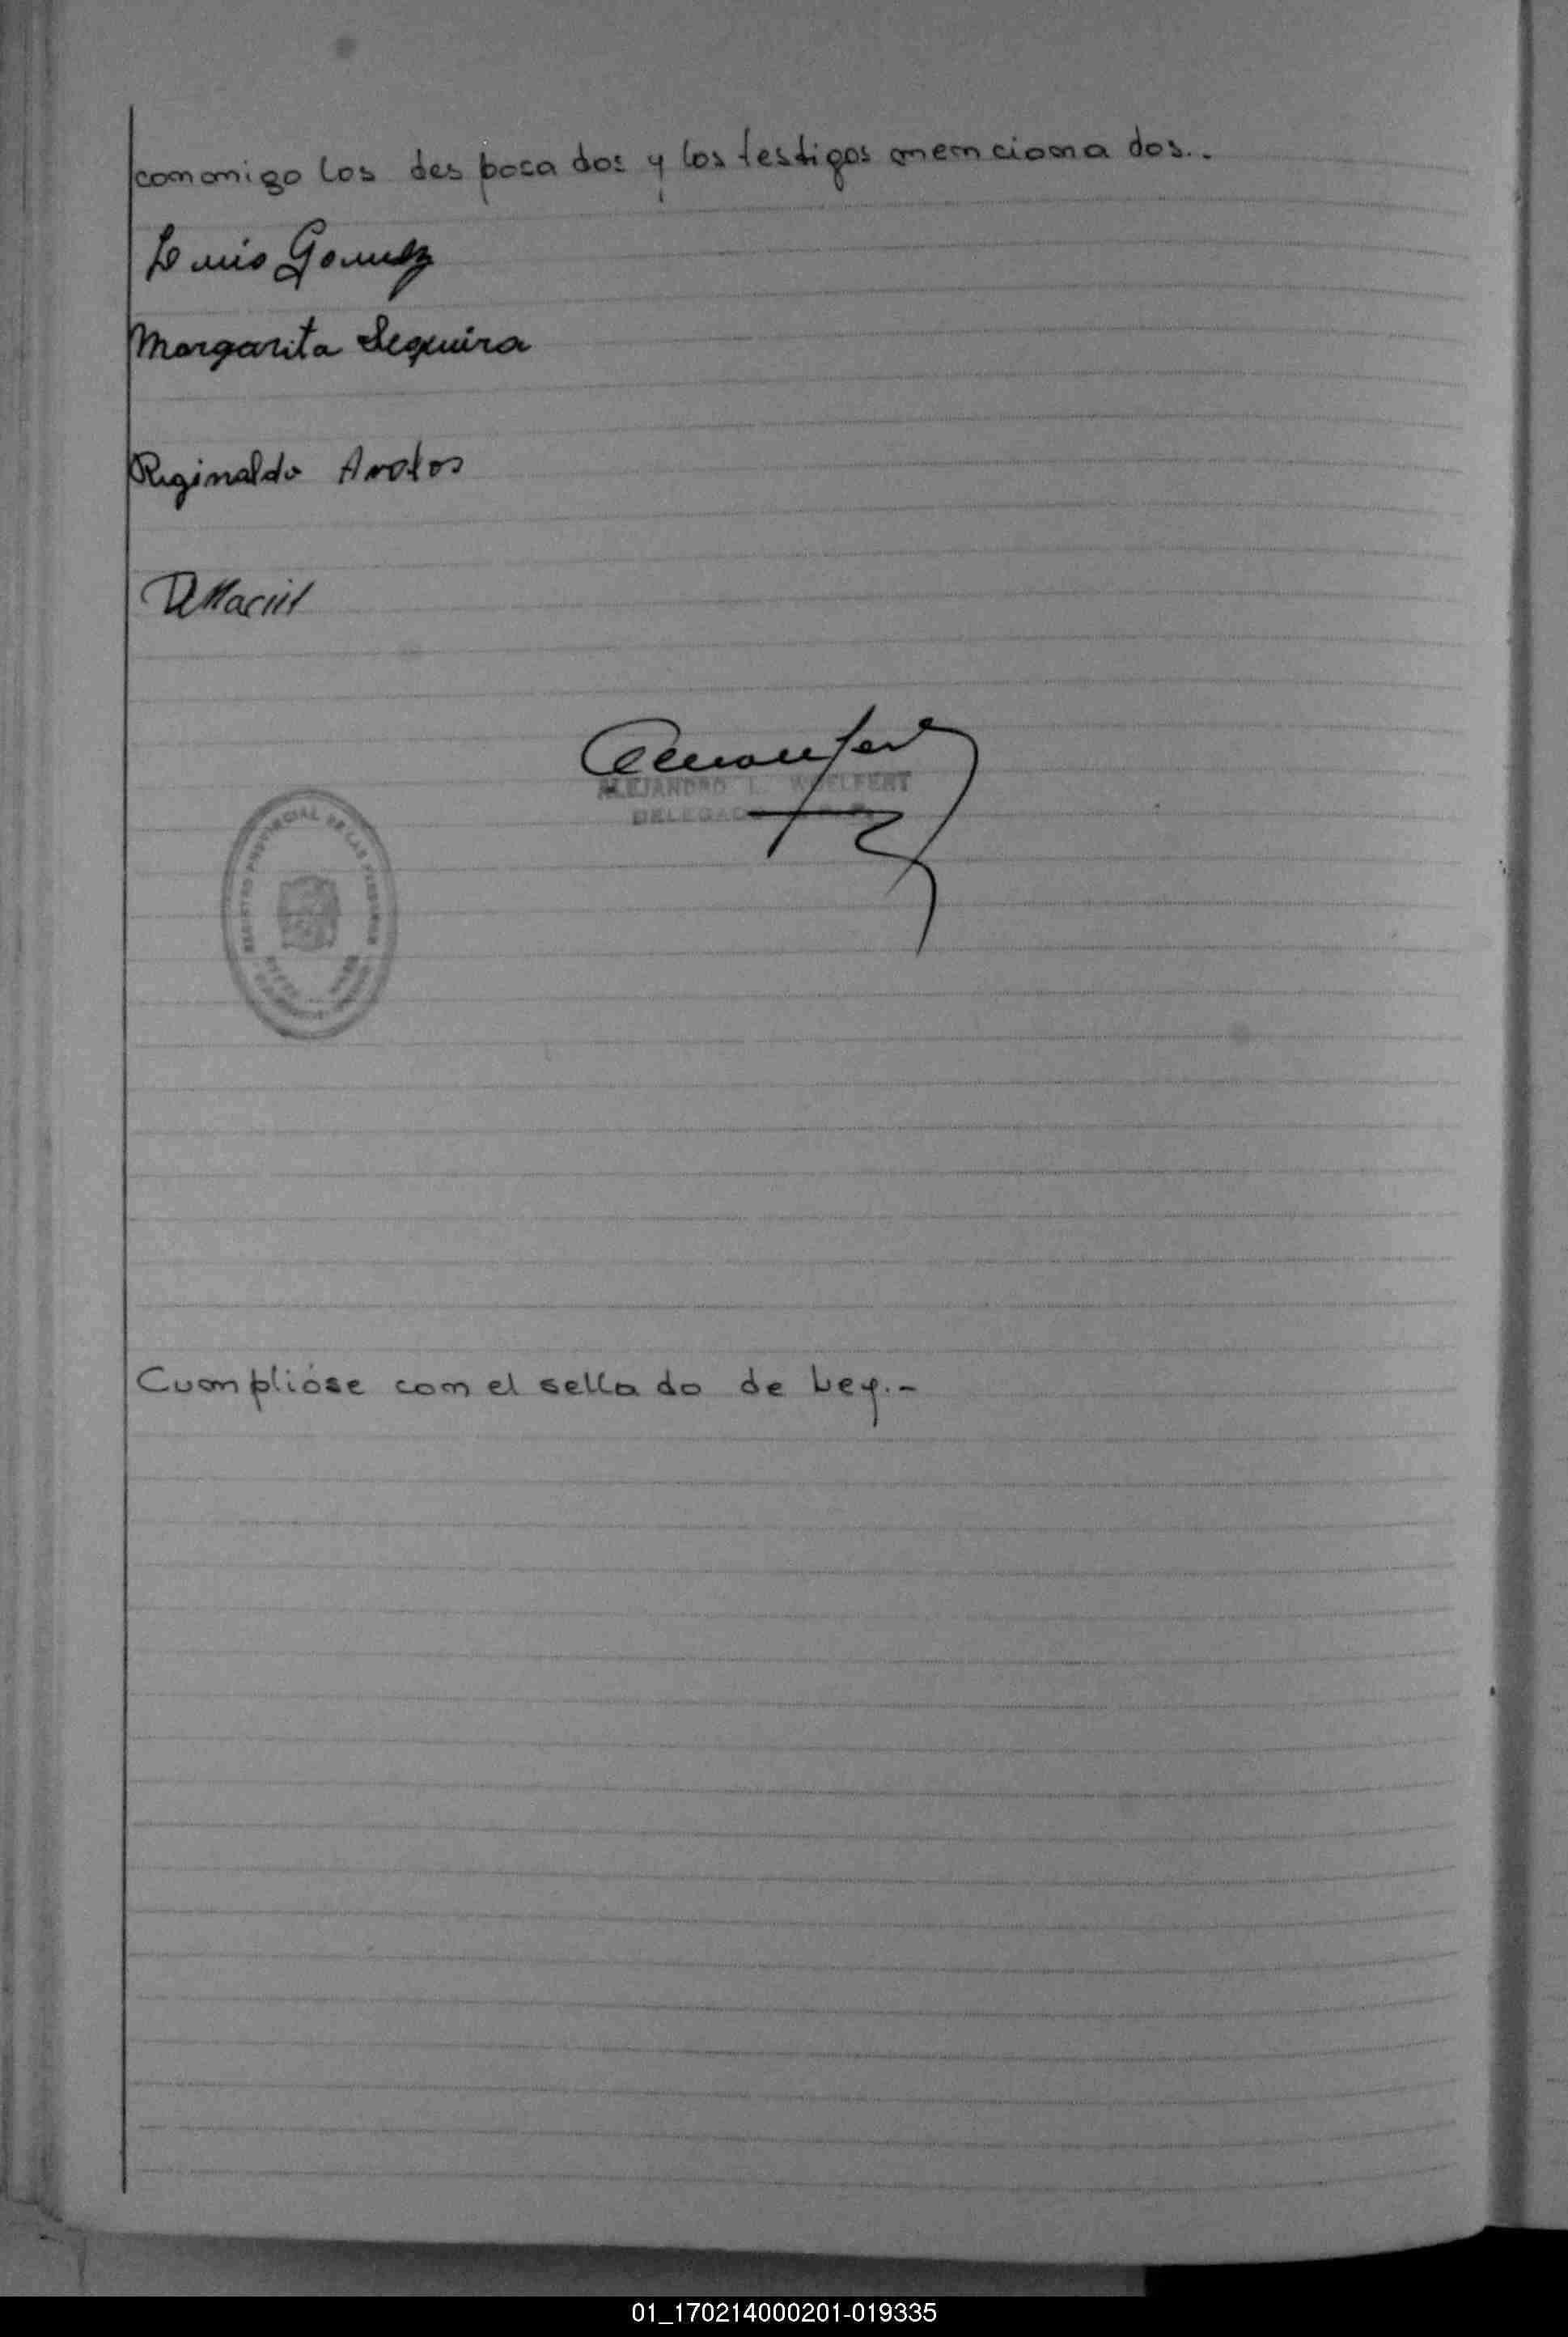 conmigo los desposados y los testigos mencionados..
Luis Gomez
Margarita Sequeira
Reginaldo
Maciel
ALEJANDRO L. WOELFERT
DELEGADO
REGISTRO PROVINCIAL DE LAS PERSONAS
Cumplióse con el sellado de Ley.-
01_170214000201-019335